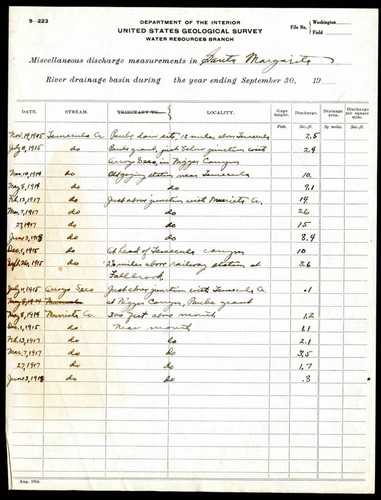 9—223
DEPARTMENT OF THE INTERIOR
UNITED STATES GEOLOGICAL SURVEY
WATER RESOURCES BRANCH
File No. Washington
Field
Miscellaneous discharge measurements in Santa Margarita
River drainage basin during the year ending September 30, 19
DATE. STREAM. TRIBUTARY TO— LOCALITY. Gage height. Discharge. Drainage area. Discharge per square mile.
Feet. Sec.-ft. Sq. miles. Sec.-ft.
Nov. 19, 1905 Temecula Cr. Pauba dam site, 12 miles above Temecula 2.5
July 11, 1915 do Pauba grant, just below junction with 2.4
Arroyo Seco, in Nigger Canyon
Mar. 10, 1914 do At gaging station near Temecula 10.
May 8, 1914 do do 9.1
Feb. 13, 1917 do Just above junction with Murrieta Cr. 14
Mar. 7, 1917 do do 26
27, 1917 do do 15
June 3, 1918 do do 8.4
Dec. 1, 1915 do At head of Temecula canyon 10
Sept. 26, 1915 do 2.5 miles above railway station at 3.6
Fallbrook.
July 11, 1915 Arroyo Seco Just above junction with Temecula Cr. .1
May 8, 1914 at Nigger Canyon, Pauba grant
May 8, 1914 Murrieta Cr. 300 feet above mouth 1.2
Dec. 1, 1915 do Near mouth 1.1
Feb. 13, 1917 do do 2.1
Mar. 7, 1917 do do 3.5
27, 1917 do do 1.7
June 3, 1918 do do .8
Aug. 1914.